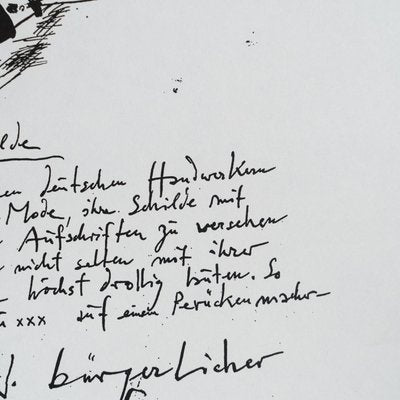 lde
en deutschen Handwerkern
Mode, ihre Schilde mit
Aufschriften zu versehen
nicht selten mit ihrer
höchst drollig lauten. So
xxx auf einen Perückenmacher-
bürgerlicher